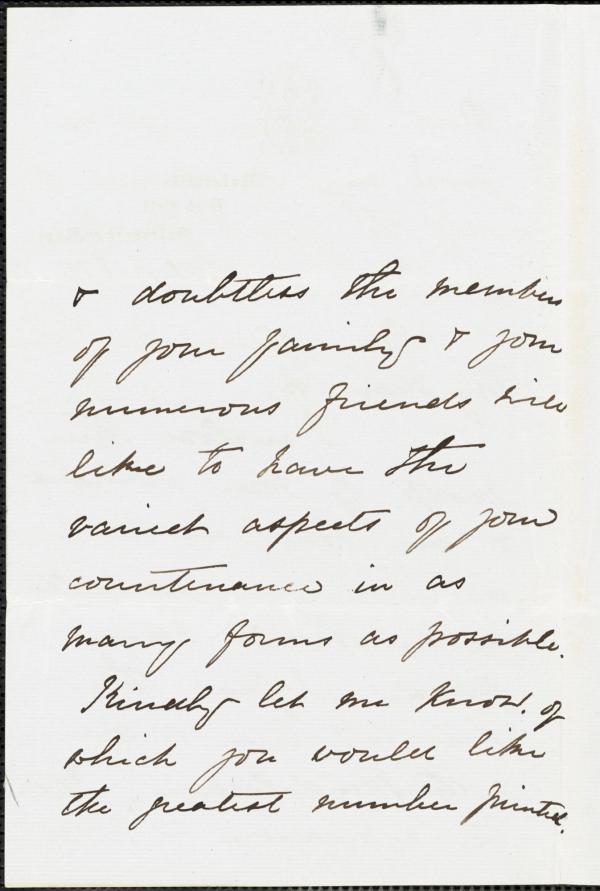 & doubtless the members
of your family & your
numerous friends will
like to have the
varied aspects of your
countenance in as
many forms as possible.
Kindly let me know, of
which you would like
the greatest number printed.